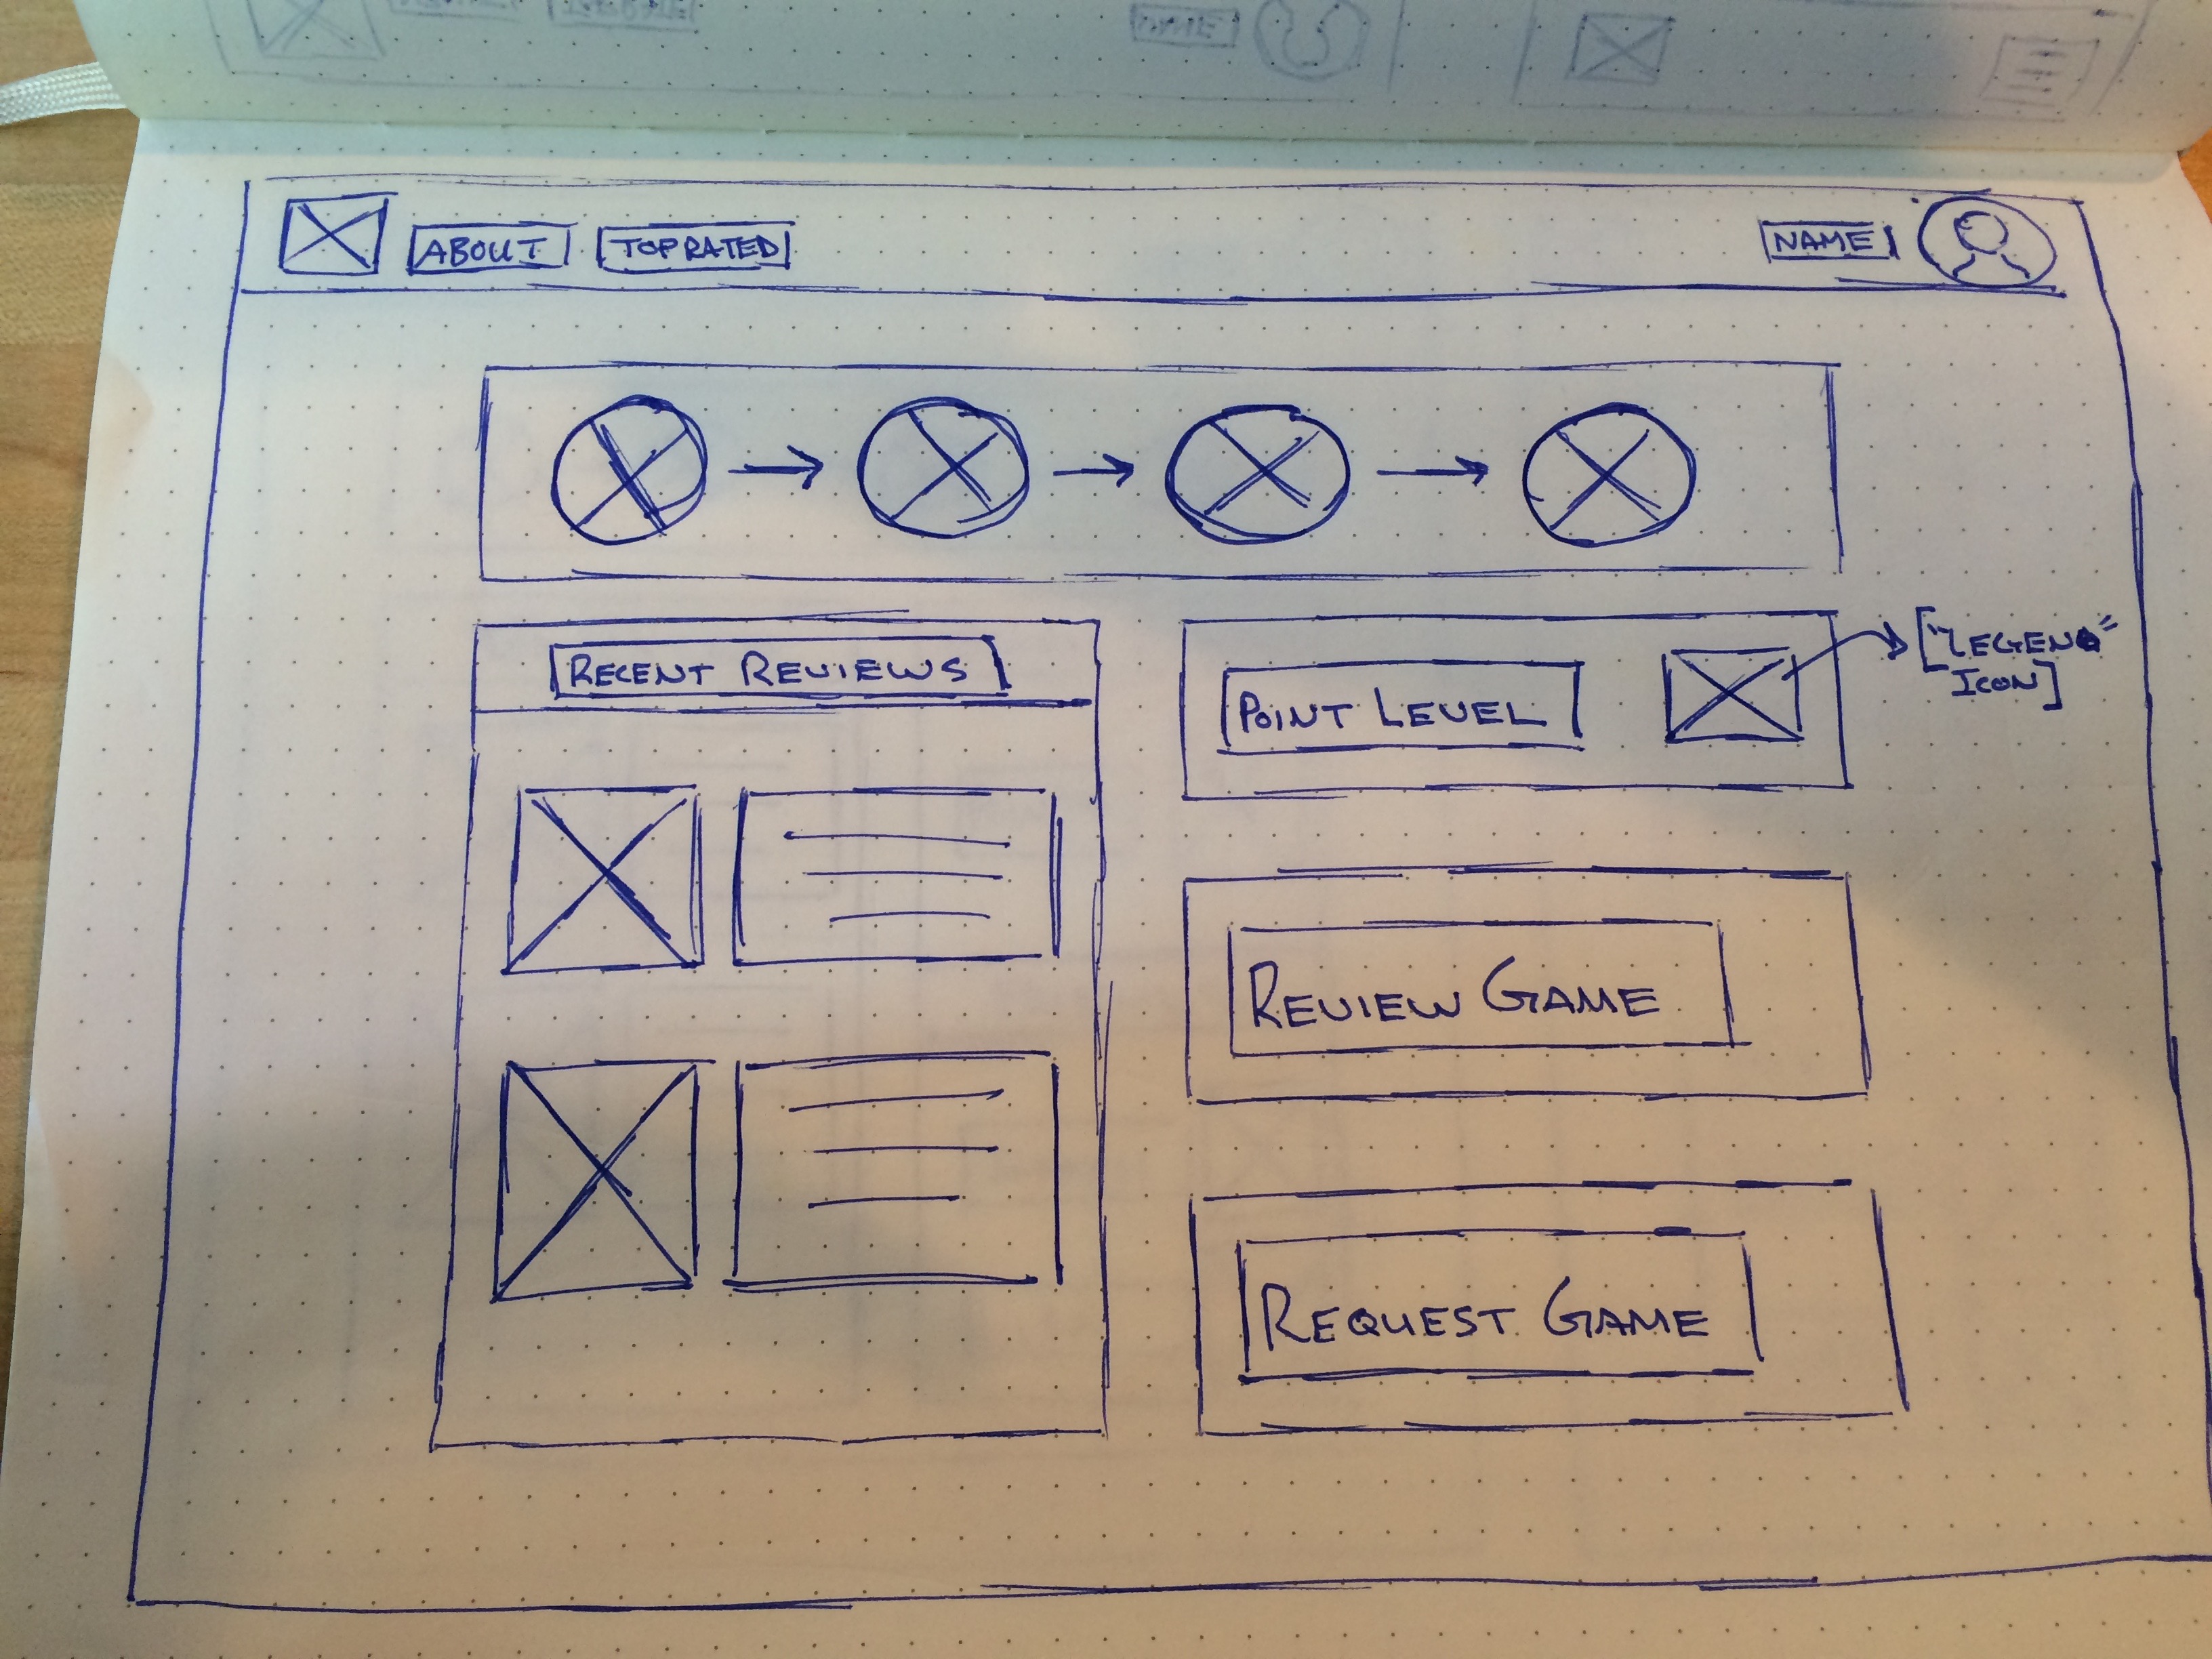 ABOUT
TOP RATED
NAME
RECENT REVIEWS
POINT LEVEL
["LEGEND"
ICON]
REVIEW GAME
REQUEST GAME